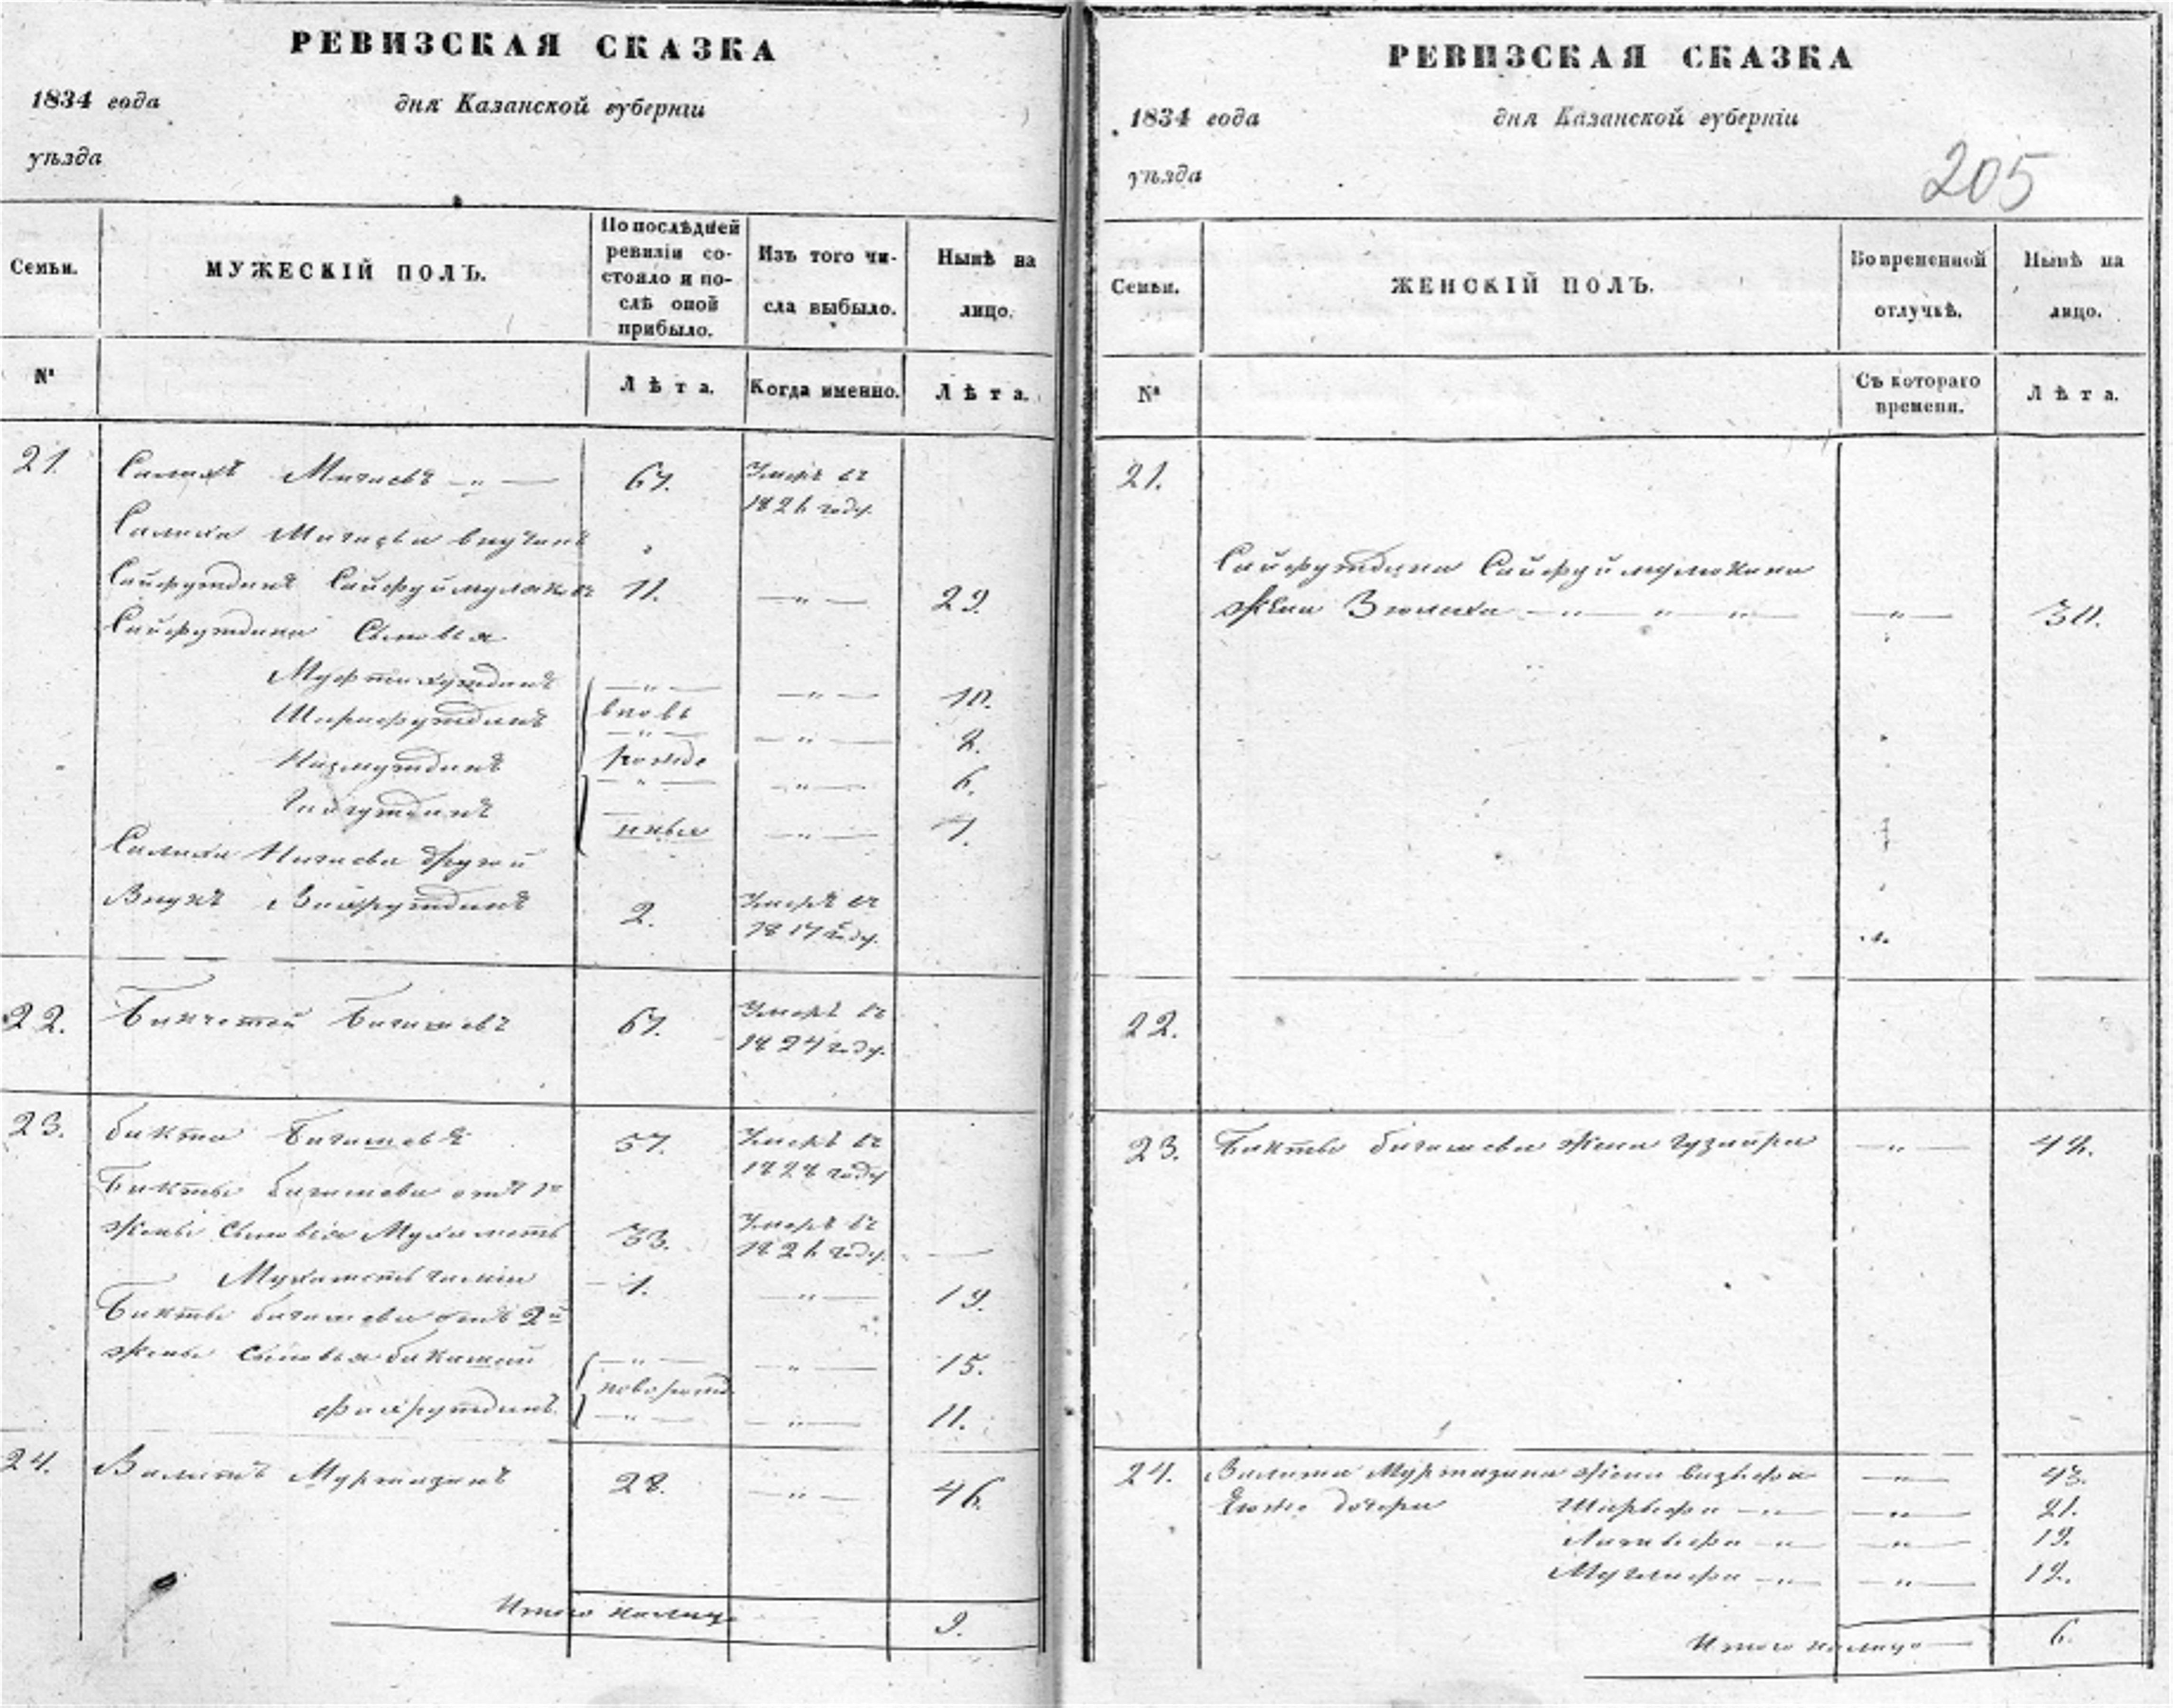 РЕВИЗСКАЯ СКАЗКА
1834 года дня Казанской губерніи
уѣзда
Семьи.
МУЖЕСКІЙ ПОЛЪ.
По послѣдней ревизіи со-
стояло и по-
слѣ оной
прибыло.
Изъ того чи-
сла выбыло.
Нынѣ на
лицо.
№
Лѣта.
Когда именно.
Лѣта.
21. Салихъ 67. Умеръ въ
1826 году.
Салиха внучатъ
Сайфутдинъ Сайфуймулюковъ 11. 29.
Сайфутдина Сыновья
Муфтахутдинъ 10.
вновь
Шарафутдинъ 2.
рожде
Низмутдинъ 6.
нные 7.
Салиха другой
Внукъ 2. Умеръ въ
1817 году.
22. Бигишевъ 67. Умеръ въ
1824 году.
23. Бикта Бигишевъ 57. Умеръ въ
1828 году
Бикты Бигишева отъ 1й
жены Сыновья Мухаметь 33. Умеръ въ
1826 году.
1. 19.
Бикты Бигишева отъ 2й
жены Сыновья 15.
новорожд
Фахрутдинъ 11.
24. Валитъ Муртазинъ 28. 46.
Итого налицо 9.
РЕВИЗСКАЯ СКАЗКА
1834 года дня Казанской губерніи
уѣзда
205
Семьи.
ЖЕНСКІЙ ПОЛЪ.
Во временной
отлучкѣ.
Нынѣ на
лицо.
№
Съ котораго
времени.
Лѣта.
21.
Сайфутдина Сайфуймулюкова
жена Зюлиха 30.
22.
23. Бикты Бигишева жена Гузаира 42.
24. Валита Муртазина жена 43.
Егоже дочери 21.
19.
12.
Итого налицо 6.